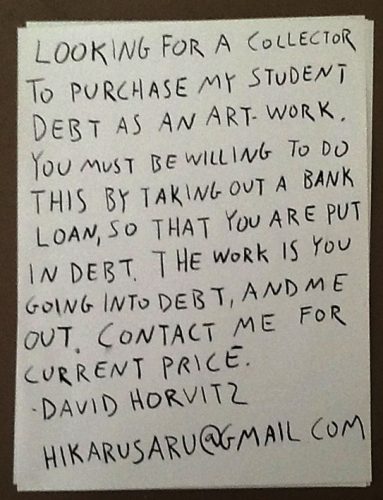 LOOKING FOR A COLLECTOR
TO PURCHASE MY STUDENT
DEBT AS AN ART-WORK.
YOU MUST BE WILLING TO DO
THIS BY TAKING OUT A BANK
LOAN, SO THAT YOU ARE PUT
IN DEBT. THE WORK IS YOU
GOING INTO DEBT, AND ME
OUT. CONTACT ME FOR
CURRENT PRICE.
-DAVID HORVITZ
HIKARUSARU@GMAIL COM